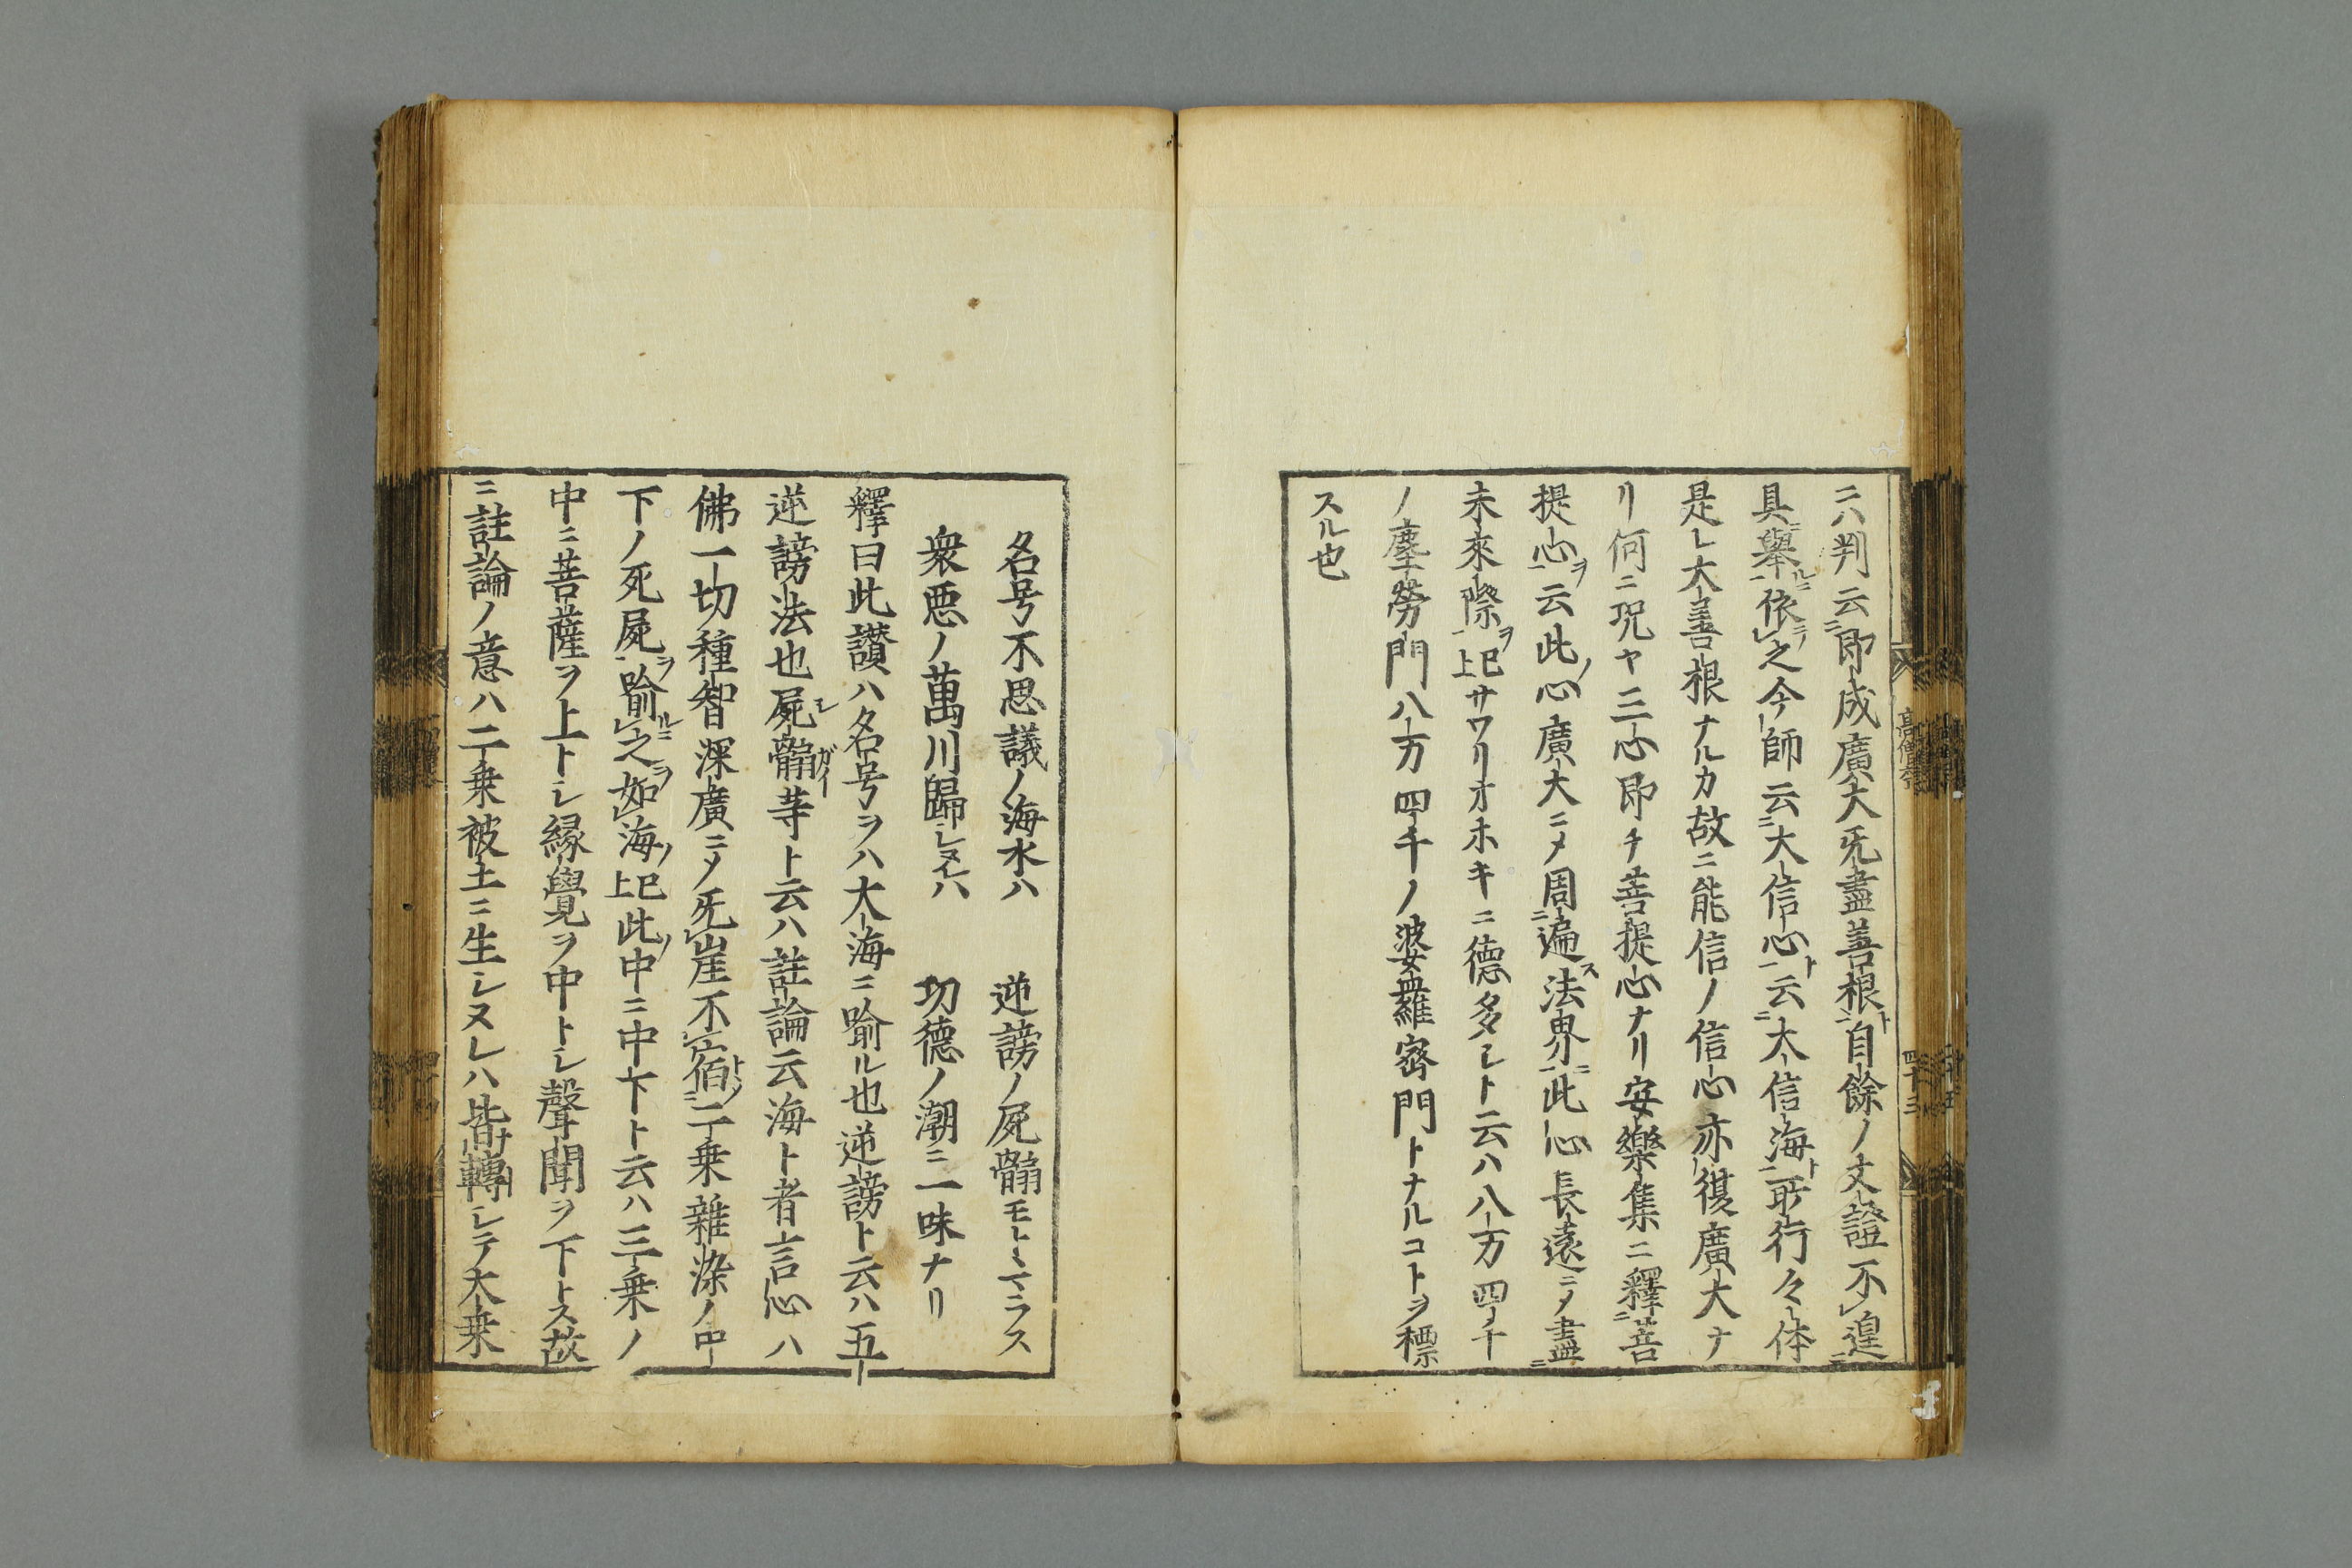 ニハ判云即成廣大旡盡善根自餘ノ文證不遑
具擧依之今師云大信心云大信海所行々体
是レ大善根ナルカ故ニ能信ノ信心亦復廣大ナ
リ何ニ況ヤ三心即チ菩提心ナリ安樂集ニ釋菩
提心云此心廣大ニメ周遍法界此心長遠ニメ盡
未來際已上サワリオホキニ德多シト云ハ八万四千
ノ塵勞門八万四千ノ波婆羅密門トナルコトヲ標
スル也
名号不思議ノ海水ハ 逆謗ノ屍骸モトヽマラス
衆悪ノ萬川歸シヌレハ 功德ノ潮ニ一味ナリ
釋曰此讃ハ名号ヲハ大海ニ喻ル也逆謗ト云ハ五
逆謗法也屍骸等ト云ハ註論云海ト者言心ハ
佛一切種智深廣ニメ旡崖不宿二乗雜染ノ中
下ノ死屍喻之如海已上此中ニ中下ト云ハ三乗ノ
中ニ菩薩ヲ上トシ縁覺ヲ中トシ聲聞ヲ下トス故
ニ註論ノ意ハ二乗被土ニ生シヌレハ皆轉シテ大乗